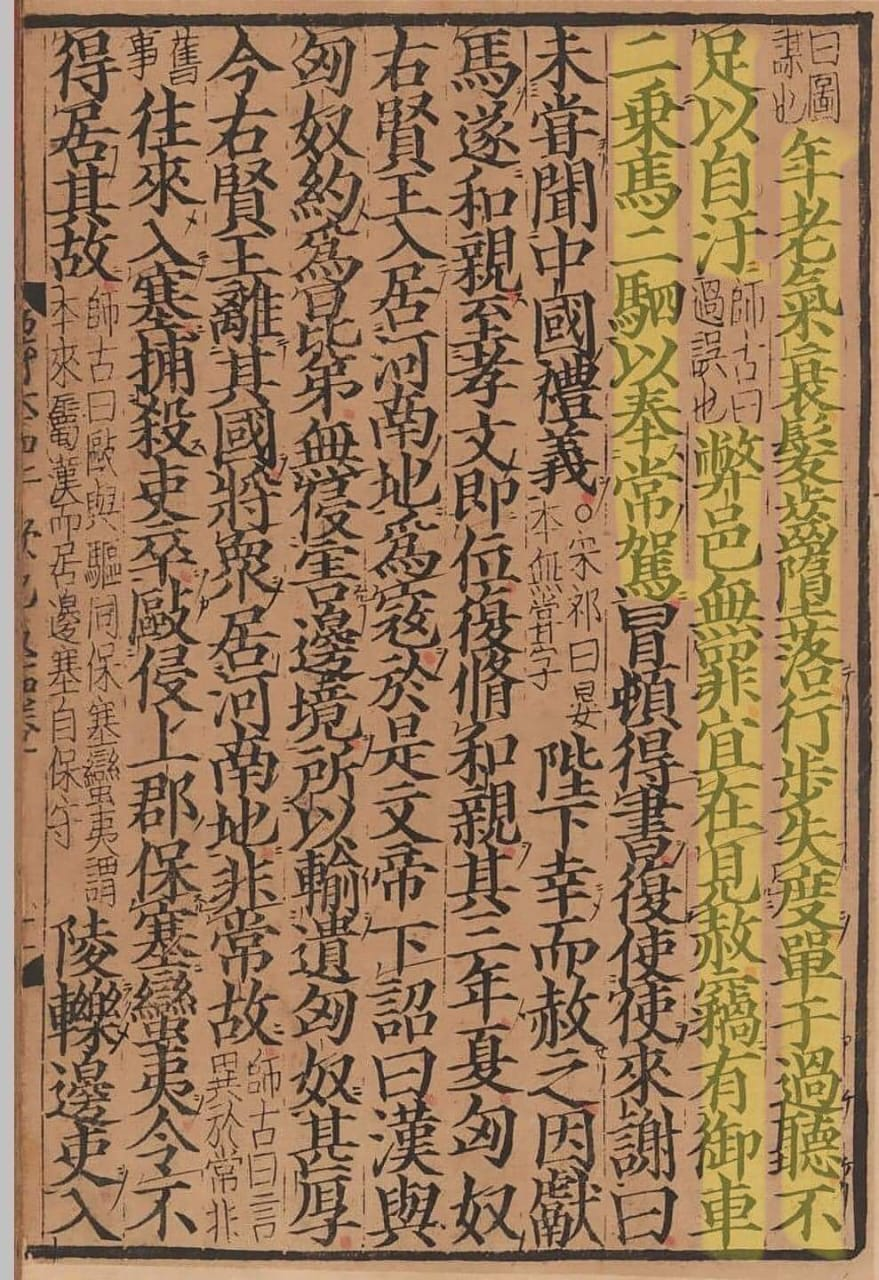 曰圖謀也年老氣衰髮齒墮落行步失度單于過聽不
足以自汙師古曰過誤也弊邑無罪宜在見赦竊有御車
二乗馬二駟以奉常駕冒頓得書復使使來謝曰
未甞聞中國禮義○宋祁曰晏本無甞字陛下幸而赦之因獻
馬遂和親至孝文即位復脩和親其三年夏匈奴
右賢王入居河南地爲寇於是文帝下詔曰漢與
匈奴約爲昆弟無侵害邊境所以輸遺匈奴甚厚
今右賢王離其國將衆居河南地非常故師古曰言異於常非
舊事往來入塞捕殺吏卒敺侵上郡保塞蠻夷令不
得居其故師古曰敺與驅同保塞蠻夷謂本來屬漢而居邊塞自保守陵轢邊吏入